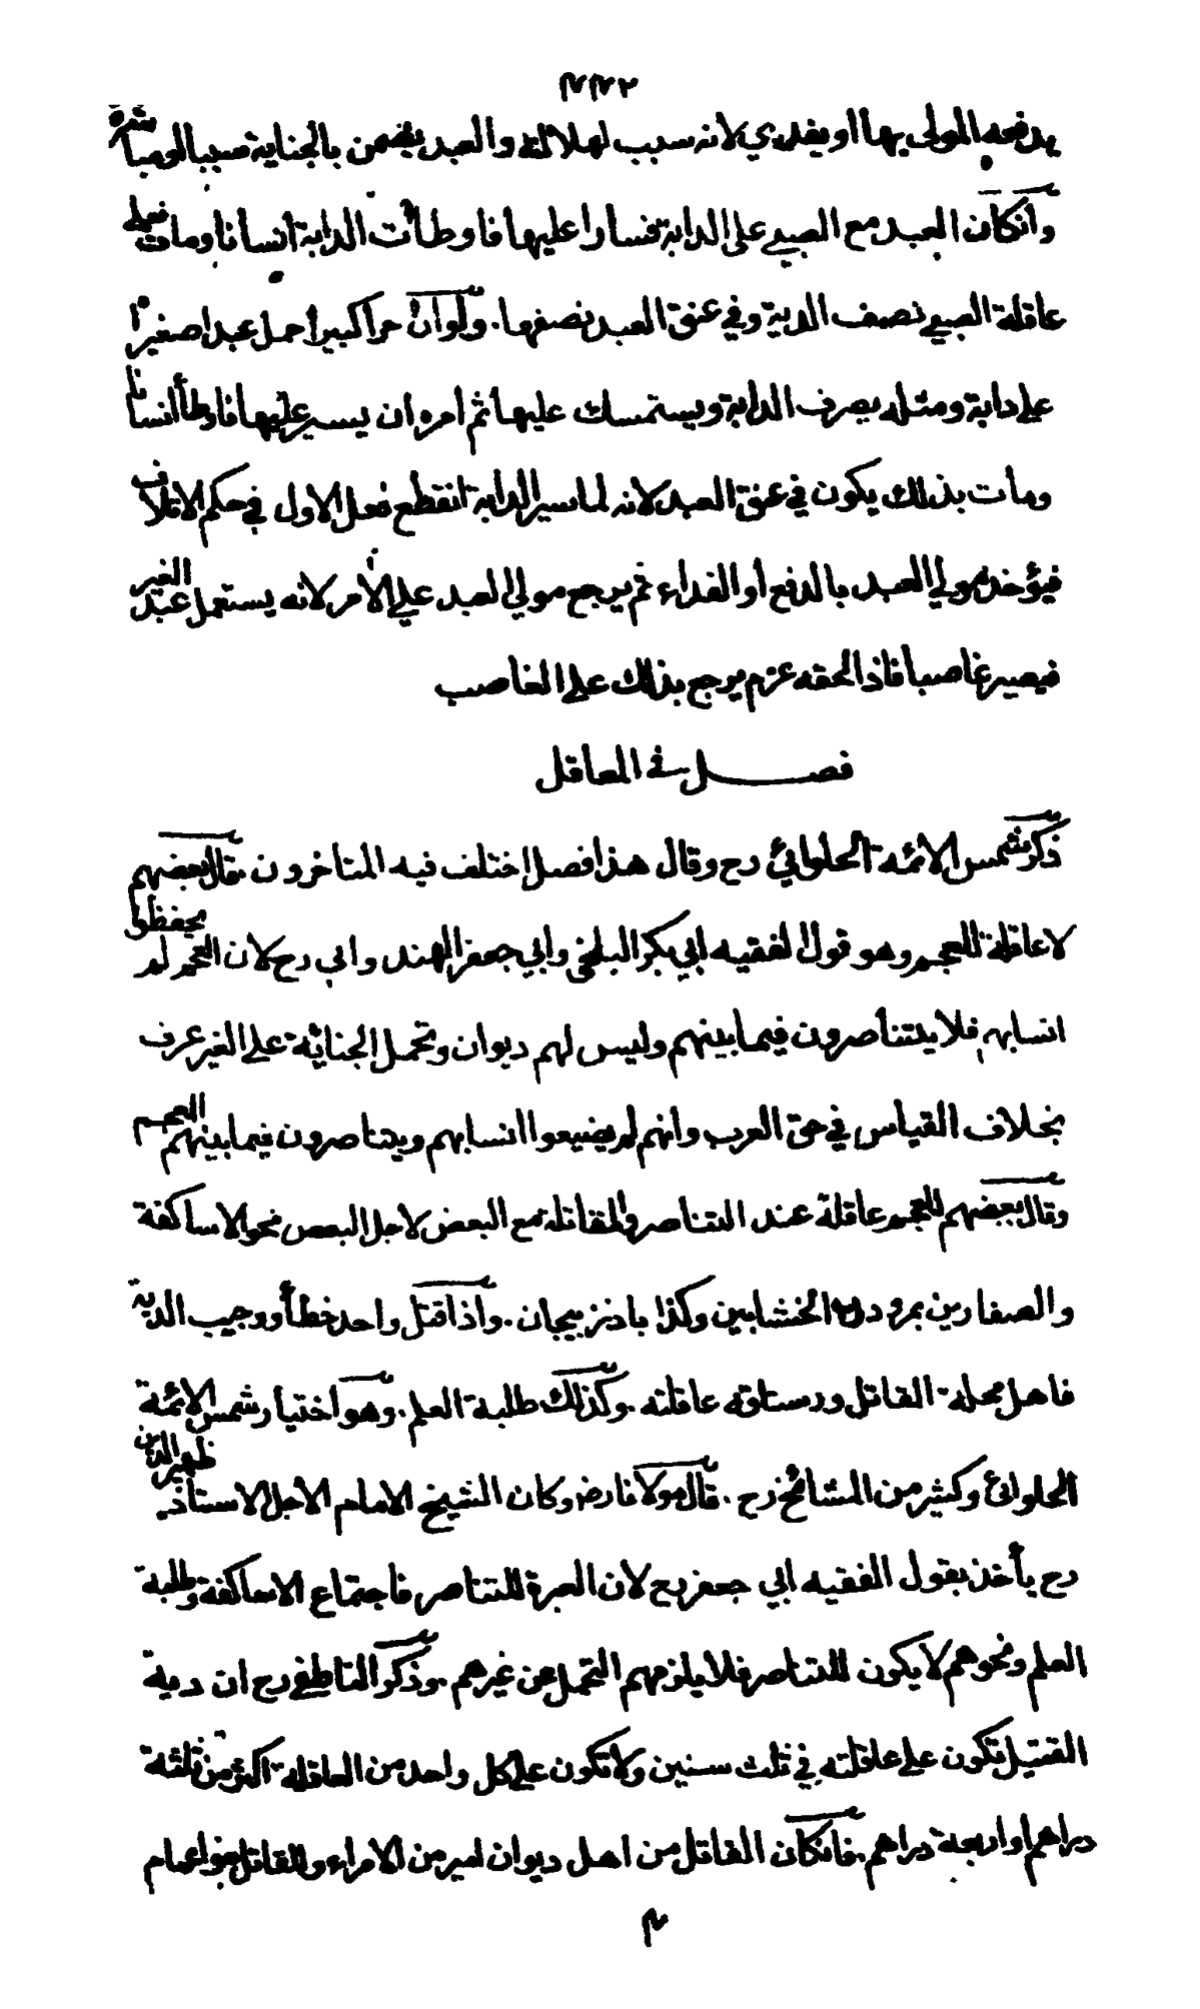 ٣٣٢
يدفعه المولى بها او يفدي لانه سبب لهلاكه والعبد يضمن بالجناية سببا او مباشرة
وان كان العبد مع الصبي على الدابة فسارا عليها فاوطأت الدابة انسانا ومات فعلى
عاقلة الصبي نصف الدية وفي عنق العبد نصفها. ولو ان حرا كبيرا حمل عبدا صغيرا
على دابة ومثله يصرف الدابة ويستمسك عليها ثم امره ان يسير عليها فاوطأ انسانا
ومات بذلك يكون في عنق العبد لانه لما سير الدابة انقطع فعل الاول في حكم الاتلاف
فيؤخذ مولى العبد بالدفع او الفداء ثم يرجع مولى العبد على الآمر لانه يستعمل عبد الغير
فيصير غاصبا فاذا لحقه غرم يرجع بذلك على الغاصب
فصل في المعاقل
ذكر شمس الائمة الحلوائي رح وقال هذا فصل اختلف فيه المتاخرون قال بعضهم
لا عاقلة للعجم وهو قول الفقيه ابي بكر البلخي وابي جعفر الهندواني رح لان العجم لم يحفظوا
انسابهم فلا يتناصرون فيما بينهم وليس لهم ديوان وتحمل الجناية على الغير عرف
بخلاف القياس في حق العرب وانهم لم يضيعوا انسابهم ويتناصرون فيما بينهم العجم
وقال بعضهم للعجم عاقلة عند التناصر والمقاتلة مع البعض لاجل البعض نحو الاساكفة
والصفارين بمرو ودرب الخشابين وكذا باذربيجان. واذا قتل واحد خطأ ووجب الدية
فاهل محلة القاتل ورستاقه عاقلته. وكذلك طلبة العلم. وهو اختيار شمس الائمة
الحلوائي وكثير من المشائخ رح. قال مولانا رض وكان الشيخ الامام الاجل الاستاذ ظهير الدين
رح يأخذ بقول الفقيه ابي جعفر رح لان العبرة للتناصر فاجتماع الاساكفة وطلبة
العلم ونحوهم لا يكون للتناصر فلا يلزمهم التحمل عن غيرهم. وذكر الناطفي رح ان دية
القتيل تكون على عاقلته في ثلث سنين ولا تكون على كل واحد من العاقلة اكثر من ثلثة
دراهم او اربعة دراهم. فان كان القاتل من اهل ديوان امير من الامراء وللقاتل بنو اعمام